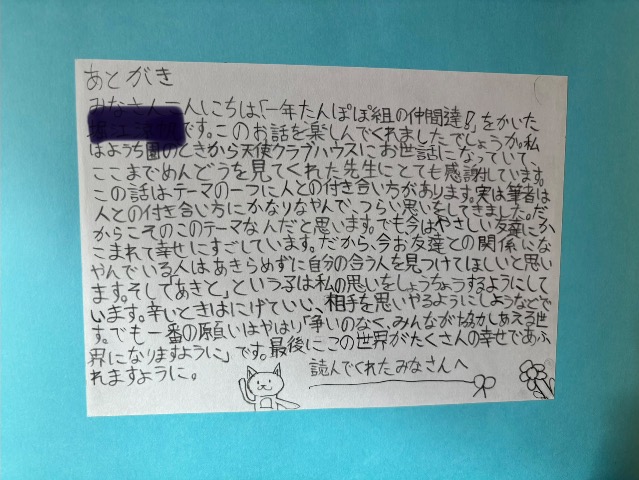 あとがき
みなさんこんにちは、「一年たんぽぽ組の仲間達!」をかいた
です。このお話を楽しんでくれましたでしょうか。私
はようち園のときから天使クラブハウスにお世話になっていて、
ここまでめんどうを見てくれた先生にとても感謝しています。
この話は、テーマの一つに人との付き合い方があります。実は筆者は
人との付き合い方にかなりなやんで、つらい思いをしてきました。だ
からこそのこのテーマなんだと思います。でも今はやさしい友達にか
こまれて幸せにすごしています。だから、今お友達との関係にな
やんでいる人はあきらめずに自分の合う人を見つけてほしいと思い
ます。そして「あきと」という子は私の思いをしょうちょうするようにして
います。辛いときはにげていい、相手を思いやるようにしようなどで
す。でも一番の願いはやはり「争いのなく、みんなが協力しあえる世
界になりますように」です。最後にこの世界がたくさんの幸せであふ
れますように。
読んでくれたみなさんへ